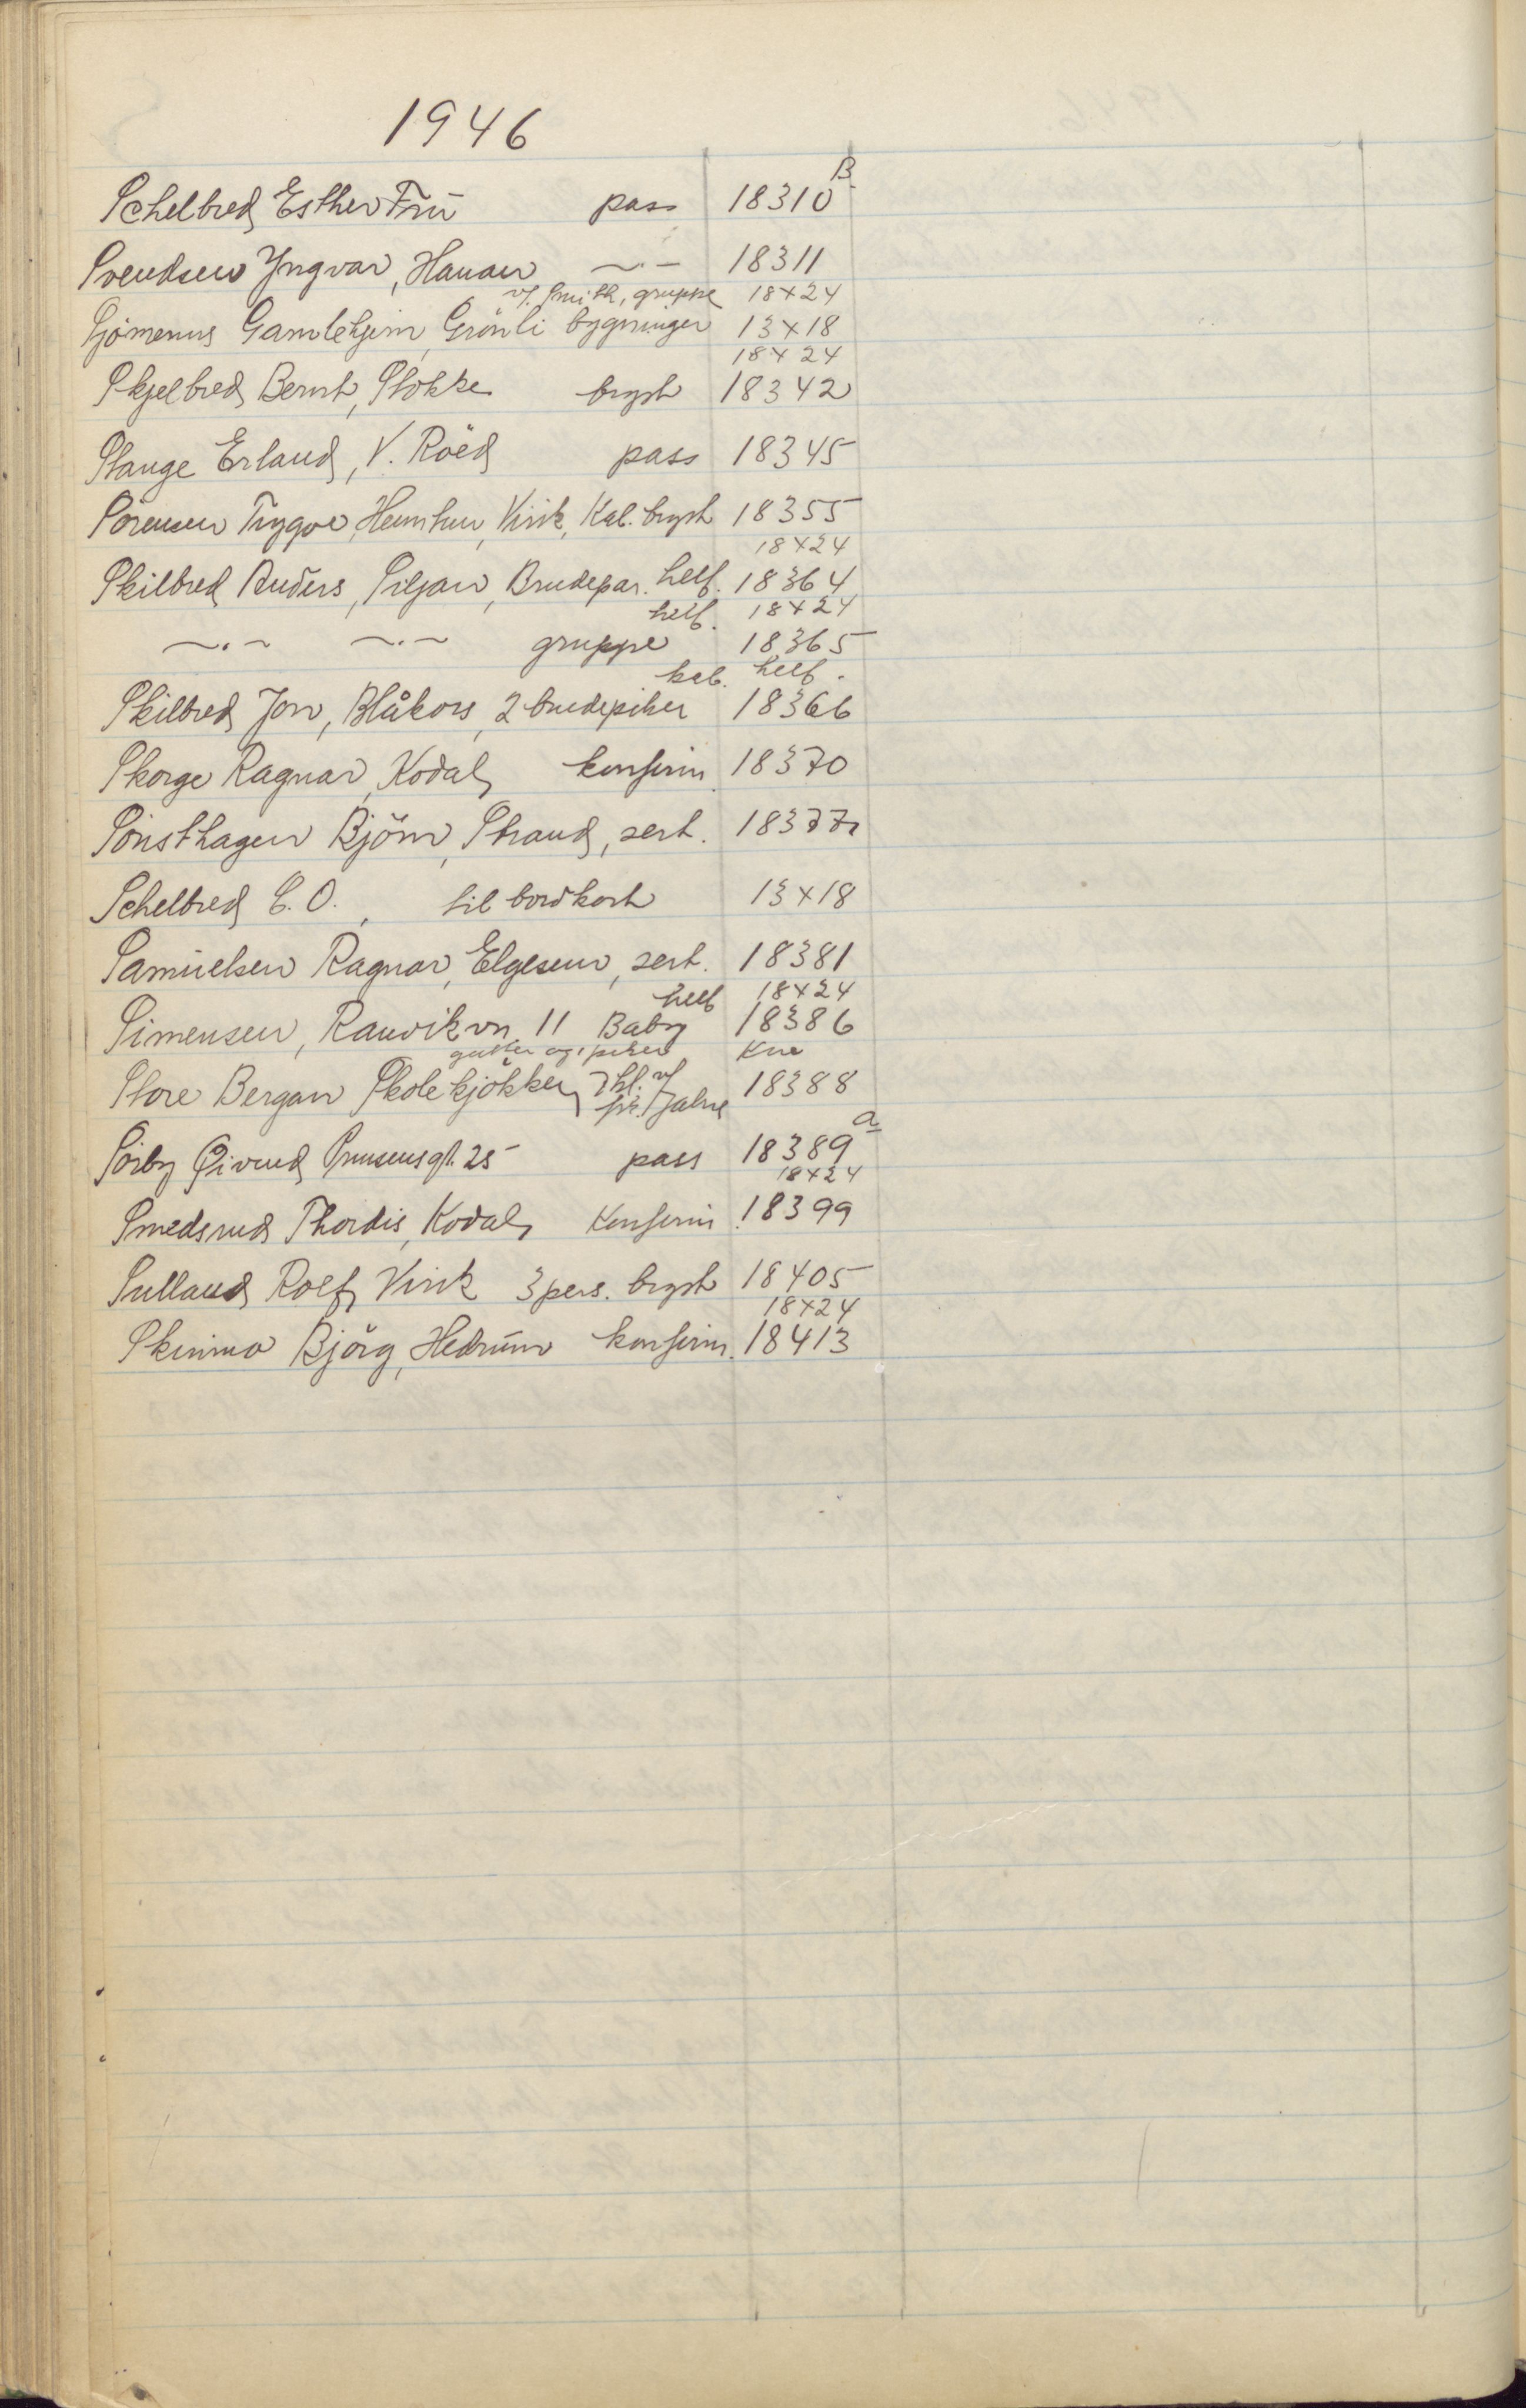 1946
B
Schelbred Esther Fru pass 18310
Svendsen Yngvar, Hauan —.— 18311
v/ Smith, gruppe 18x24
Sjömenns Gamlehjem, Grönli bygninger 13x18
18x24
Skjelbred Bernt, Stokke bryst 18342
Stange Erland, V. Röed pass 18345
Sörensen Trygve, Virik, Kab. bryst 18355
18x24
Skilbred Anders, Siljan, Brudepar. helf. 18364
helf. 18x24
—.— —.— gruppe 18365
kab. helf.
Skilbred Jon, Blåkors, 2 brudepiker 18366
Skorge Ragnar, Kodal, konfirm. 18370
Sönsthagen Björn, Strand, sert. 18377
Schelbred C.O., til bordkort 13x18
Samuelsen Ragnar, Elgesem, sert. 18381
helf 18x24
Simensen, Ranvikvn 11 Baby 18386
gutter og piker Kne
Store Bergan Skolekjökken, 7 kl. v/ 18388
frk. Jahre
a
Sörby Öivind 25 pass 18389
18x24
Smedsrud Thordis, Kodal, Konfirm. 18399
Sulland Rolf, Virik 3 pers. bryst 18405
18x24
Skinmo Björg, Hedrum konfirm. 18413